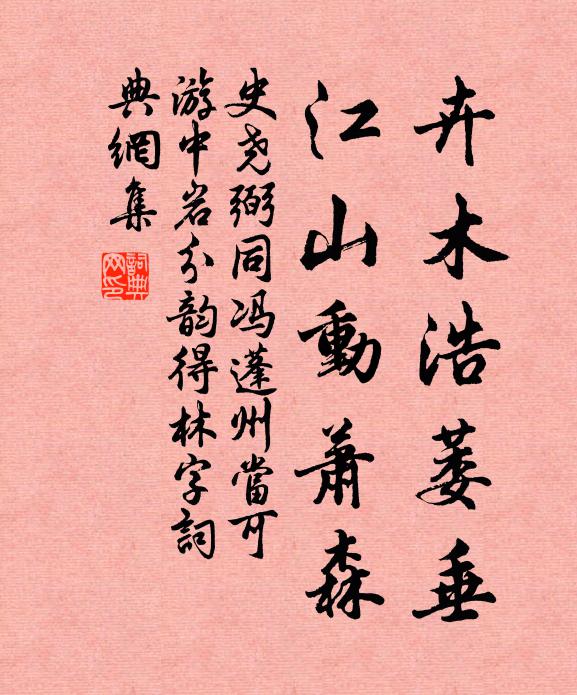 卉木浩萎垂
江山動蕭森
史尧弼同冯蓬州當可
游中岩分韵得林字詞
典網集
詞典
网印